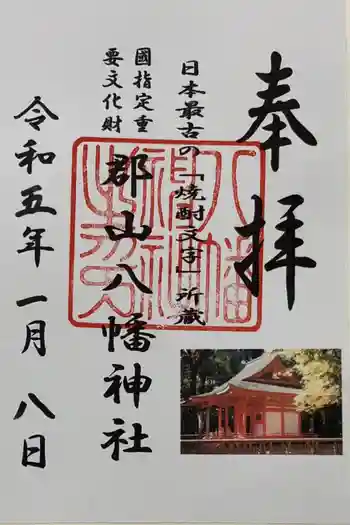 奉拝
日本最古の「焼酎文字」所蔵
國指定重
要文化財
郡山八幡神社
令和五年一月八日